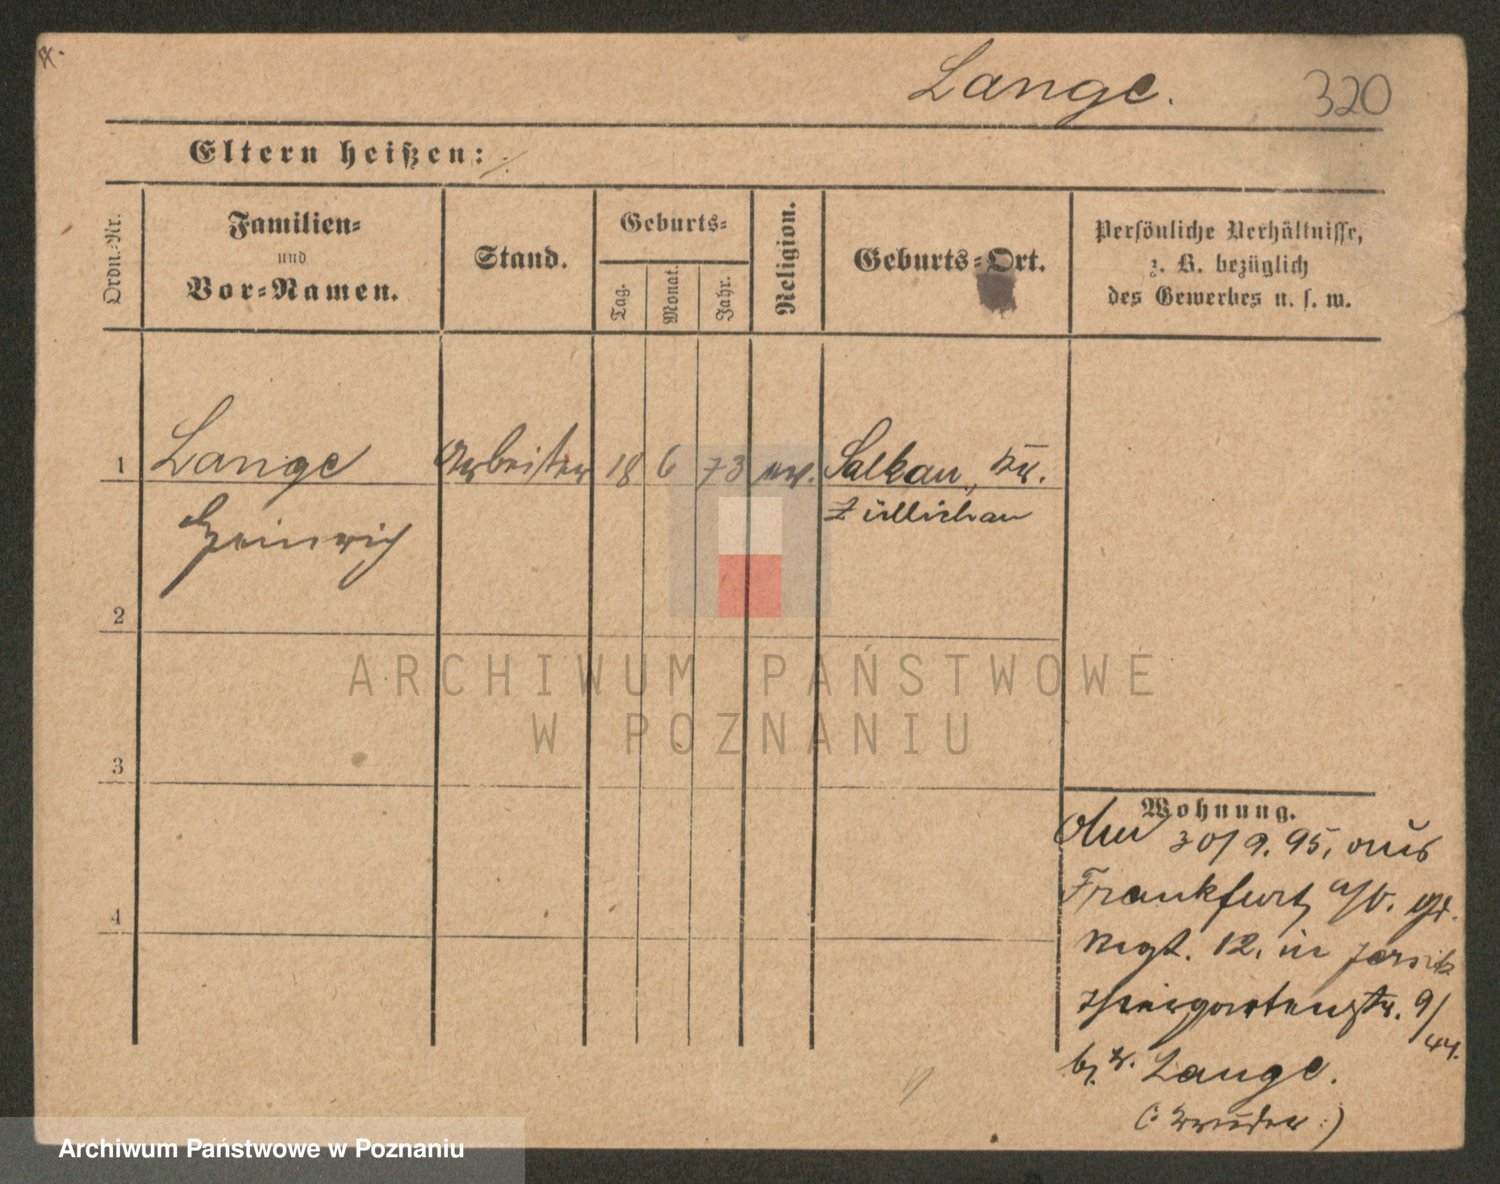 Lange.
320
Eltern heißen: ./.
Ordn.-Nr.
Familien-
und
Vor-Namen.
Stand.
Geburts-
Tag.
Monat.
Jahr.
Religion.
Geburts-Ort.
Persönliche Verhältnisse,
z. B. bezüglich
des Gewerbes u. s. w.
1 Lange Arbeiter 18 6 73 ev. Salkau, Kr.
Heinrich Züllichau
2
3
4
ARCHIWUM PAŃSTWOWE
W POZNANIU
Wohnung.
Am 30/9.95. aus
Frankfurt a/O. Gr.
Regt. 12. in Jersitz
Thiergartenstr. 9/
44.
b. Lange.
(: Bruder :)
Archiwum Państwowe w Poznaniu